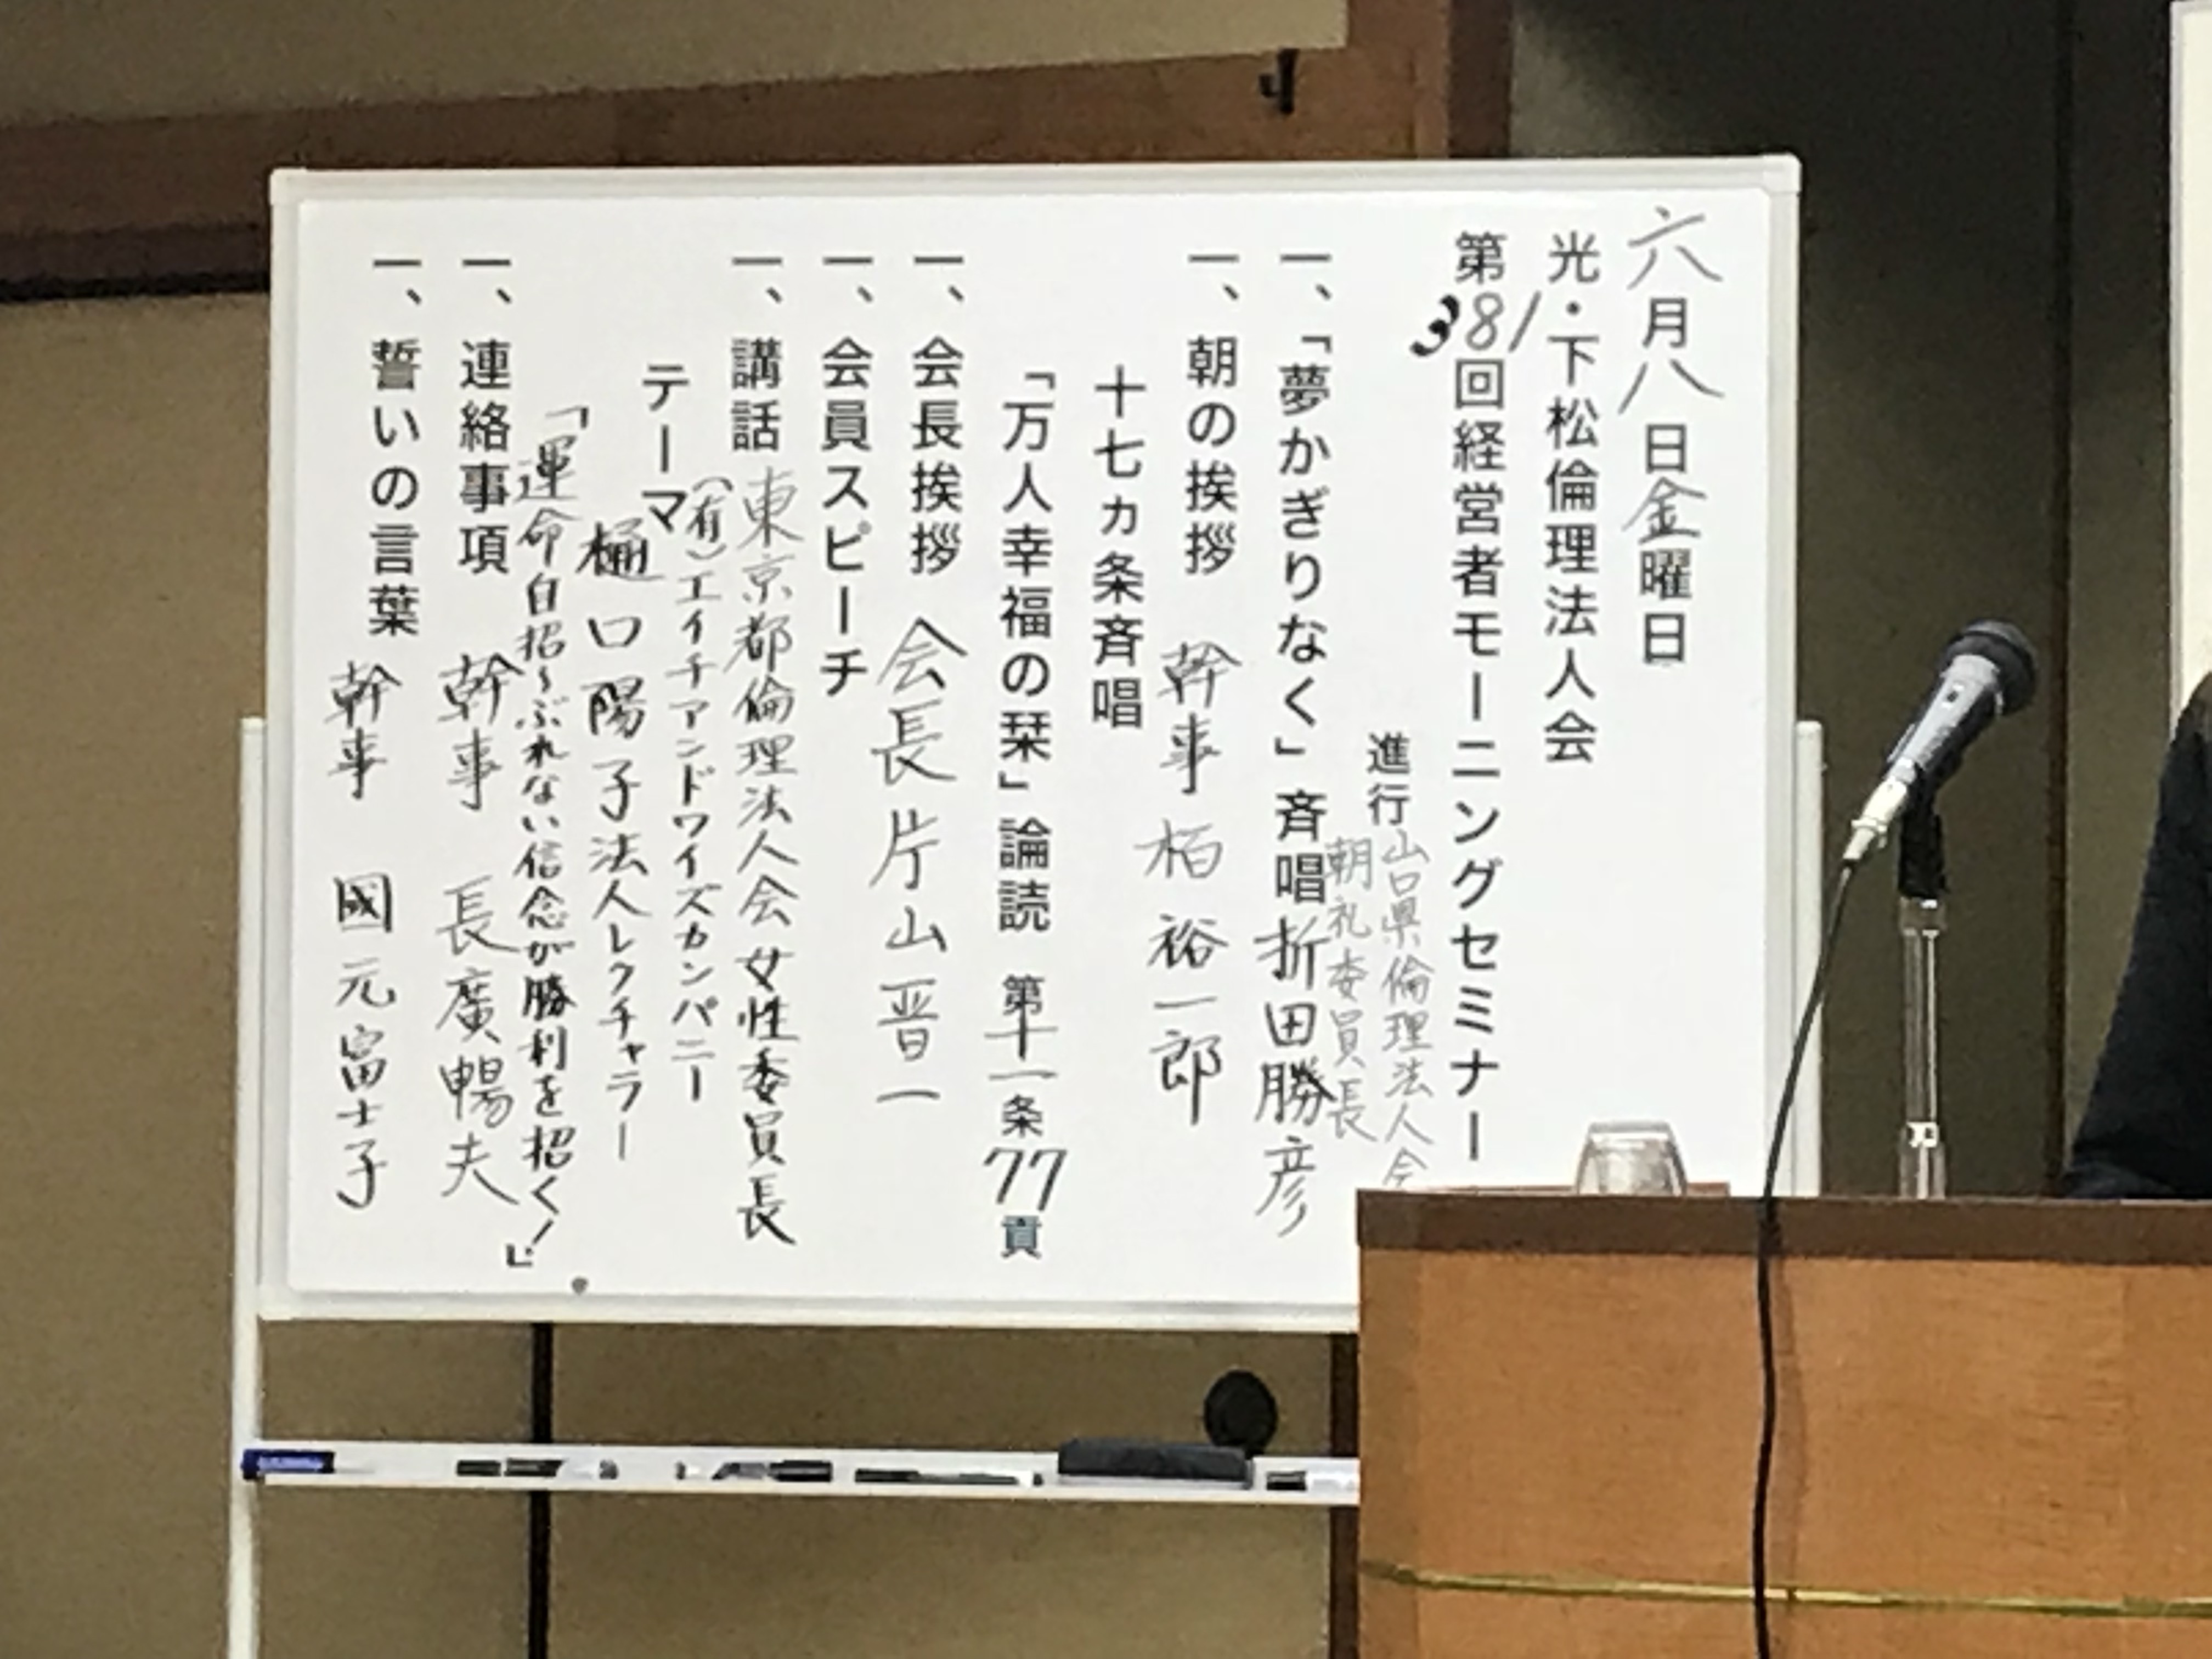 六月八日金曜日
光・下松倫理法人会
第381回経営者モーニングセミナー
進行 山口県倫理法人会
朝礼委員長
一、「夢かぎりなく」斉唱 折田勝彦
一、朝の挨拶 幹事 栢 裕一郎
十七ヵ条斉唱
「万人幸福の栞」論読 第十一条77貢
一、会長挨拶 会長 片山晋一
一、会員スピーチ
一、講話 東京都倫理法人会 女性委員長
(有)エイチアンドワイズカンパニー
テーマ
樋口陽子法人レクチャラー
「運命自招〜ぶれない信念が勝利を招く!」
一、連絡事項 幹事 長廣暢夫
一、誓いの言葉 幹事 國元富士子